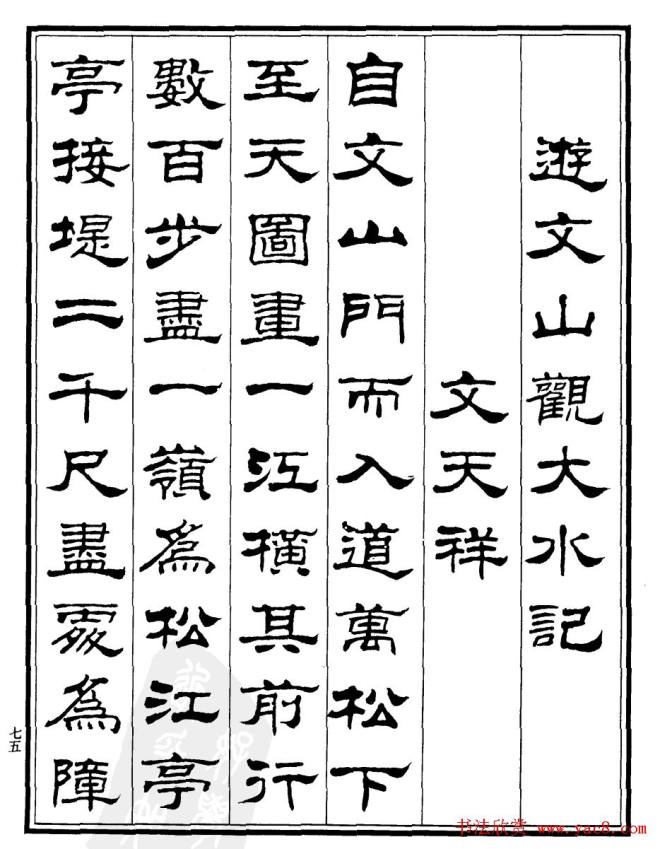 遊文山觀大水記
文天祥
自文山門而入道萬松下
至天圖畫一江橫其前行
數百步盡一嶺為松江亭
亭接堤二千尺盡處為障
七五
书法欣赏 www.yac8.com